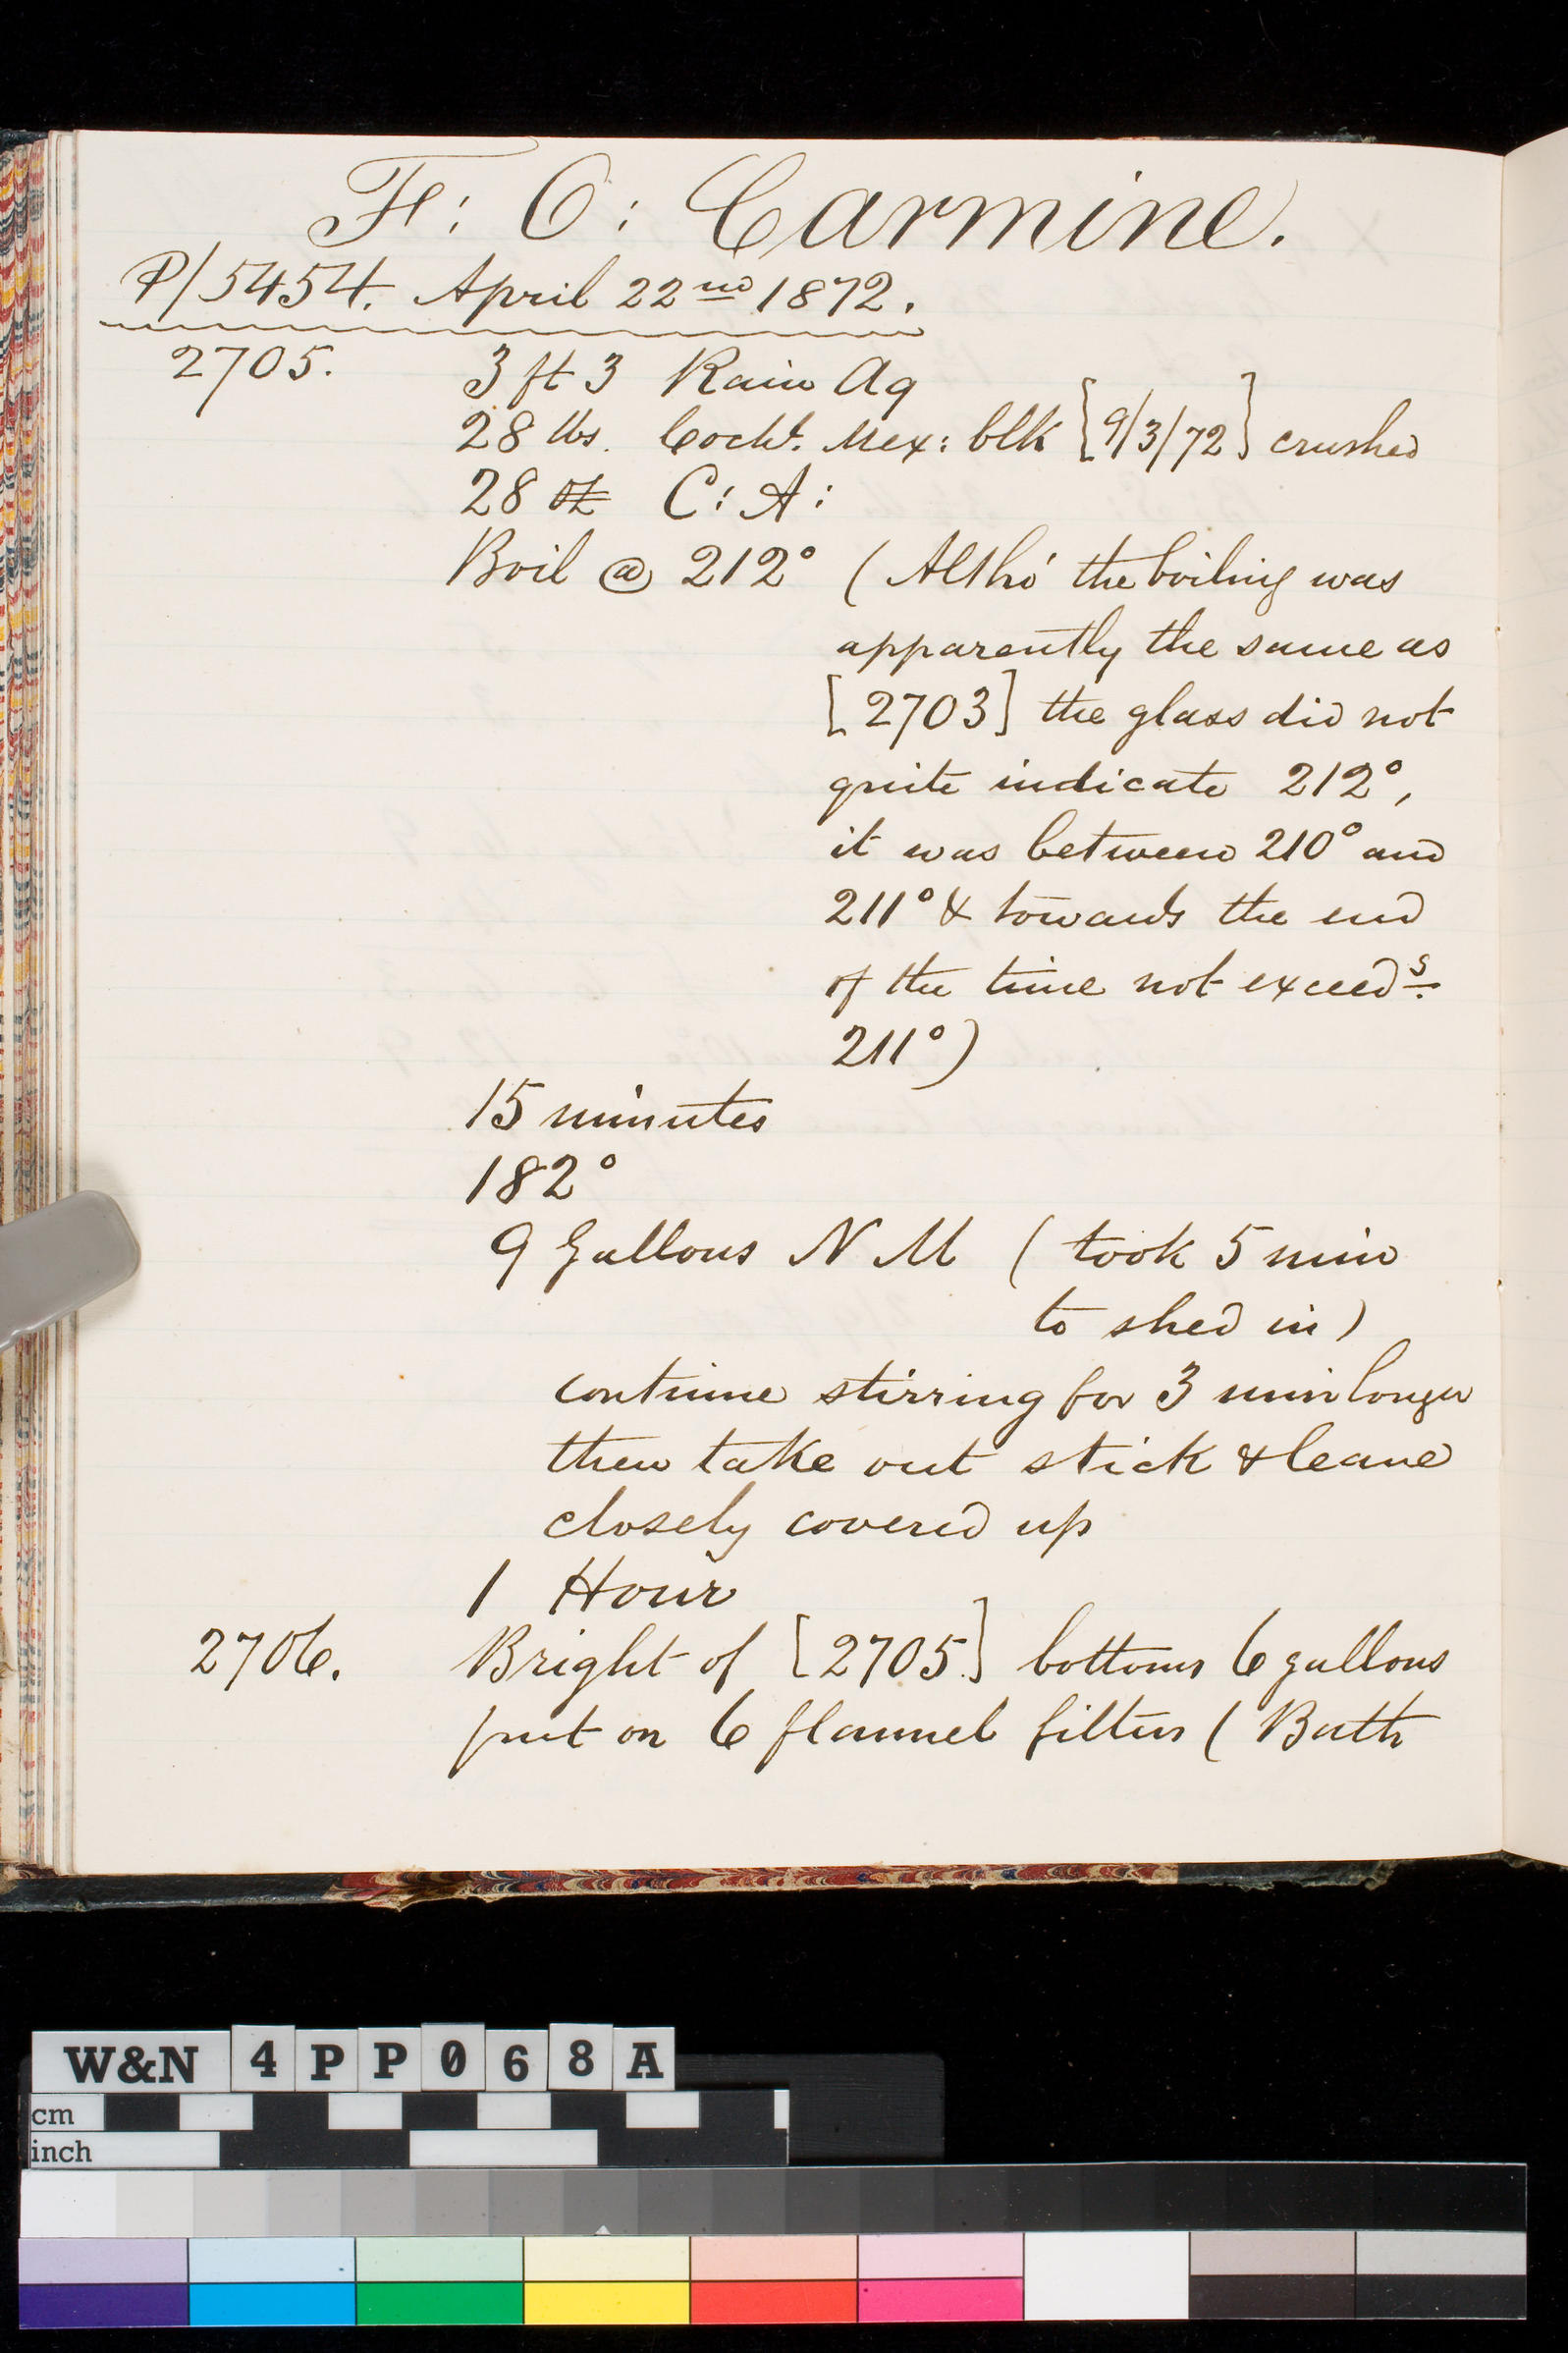 F: O: Carmine.
P/5454. April 22nd 1872.
2705. 3 ft 3 Rain Aq
28 lbs. Cochl. Mex: blk [9/3/72] crushed
28 oz C: A:
Boil @ 212° (Altho' the boiling was
apparently the same as
[2703] the glass did not
quite indicate 212°,
it was between 210° and
211° & towards the end
of the time not exceeds.
211°)
15 minutes
182°
9 Gallons N M (took 5 min
to shed in)
continue stirring for 3 min longer
then take out stick & leave
closely covered up
1 Hour
2706. Bright of [2705.] bottoms 6 gallons
put on 6 flannel filters (Bath
W&N 4PP068A
cm
inch